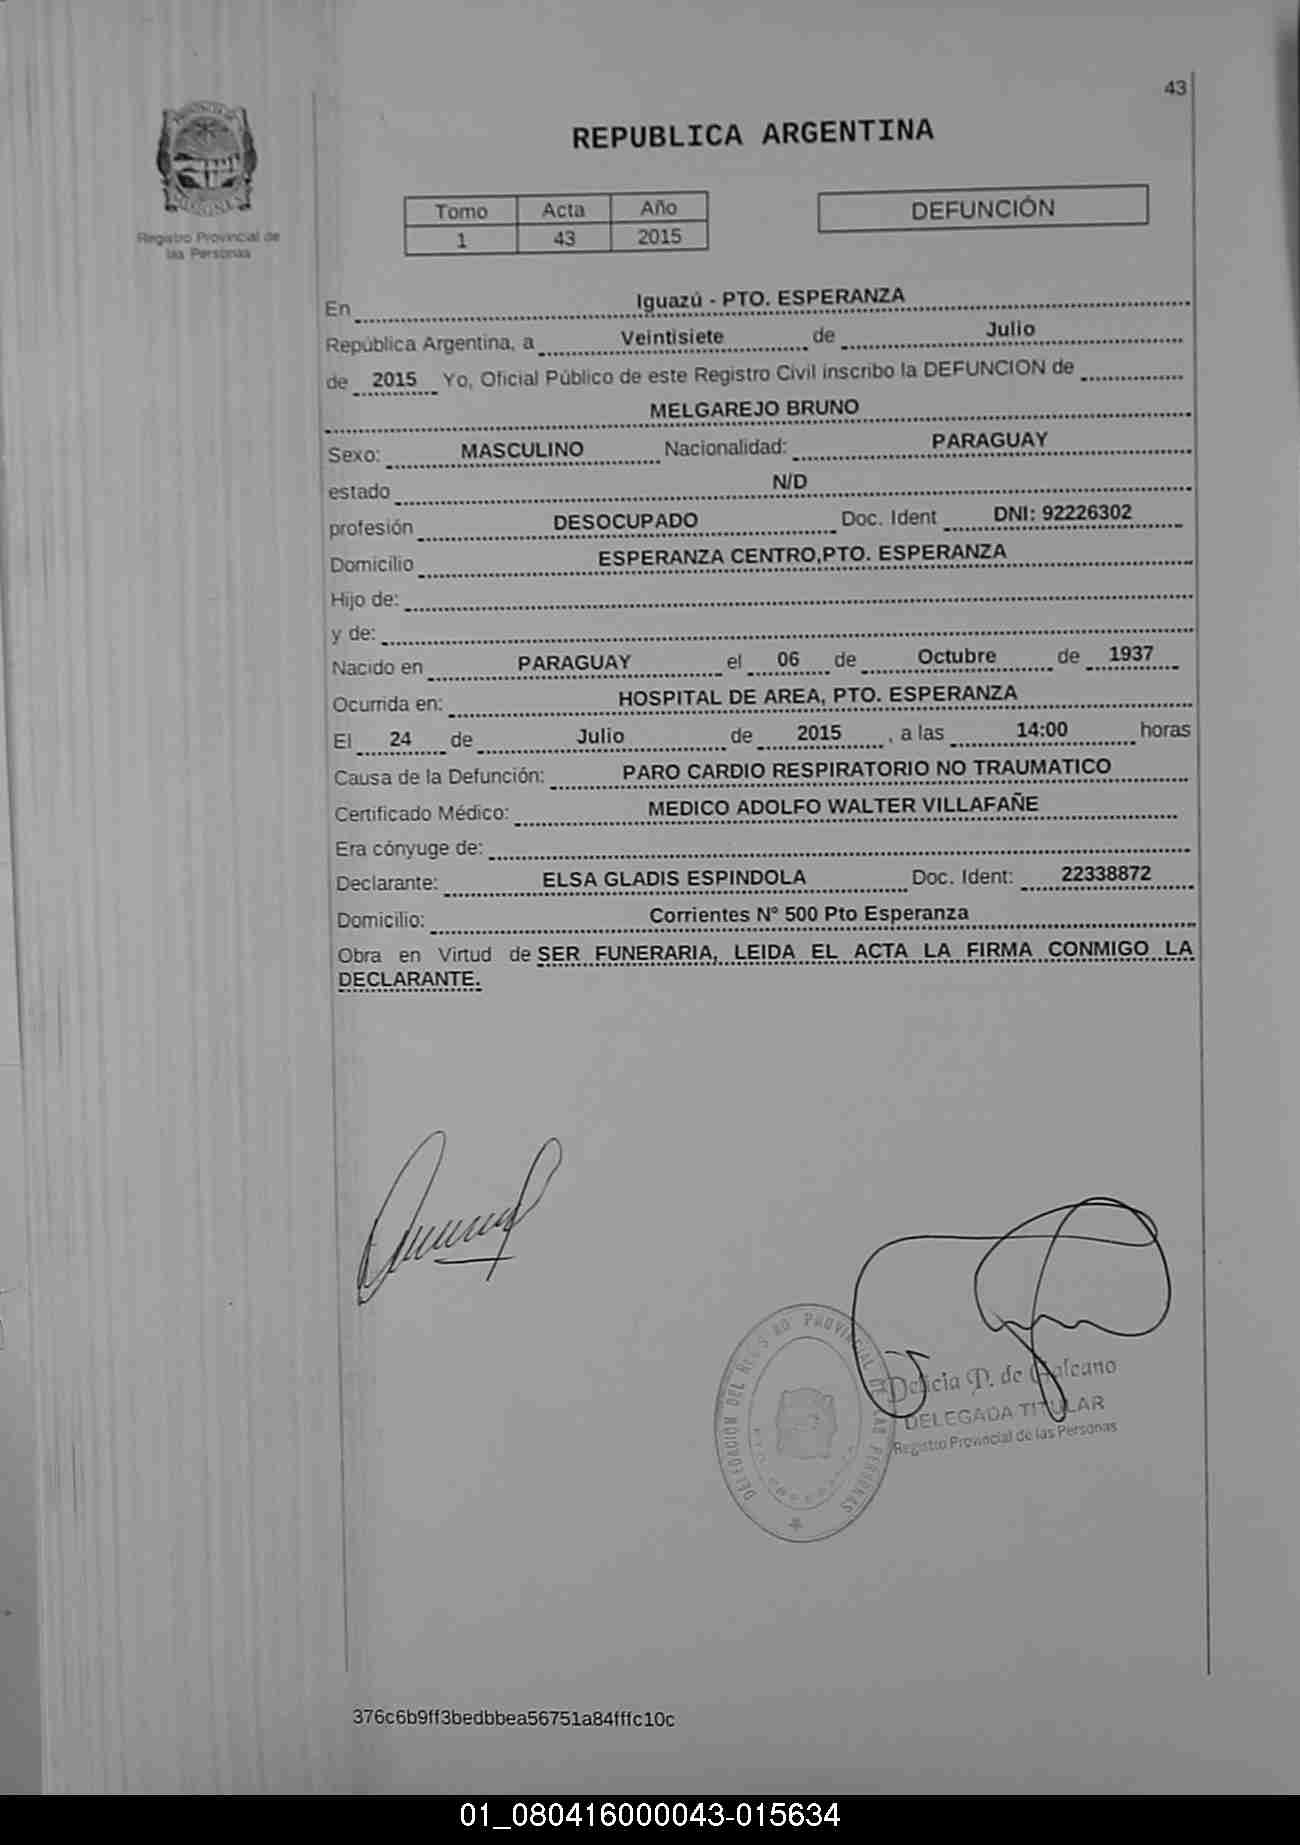 43
REPUBLICA ARGENTINA
Tomo Acta Año
1 43 2015
DEFUNCIÓN
Registro Provincial de
las Personas
En Iguazú - PTO. ESPERANZA
República Argentina, a Veintisiete de Julio
de 2015 Yo, Oficial Público de este Registro Civil inscribo la DEFUNCION de
MELGAREJO BRUNO
Sexo: MASCULINO Nacionalidad: PARAGUAY
estado N/D
profesión DESOCUPADO Doc. Ident DNI: 92226302
Domicilio ESPERANZA CENTRO,PTO. ESPERANZA
Hijo de:
y de:
Nacido en PARAGUAY el 06 de Octubre de 1937
Ocurrida en: HOSPITAL DE AREA, PTO. ESPERANZA
El 24 de Julio de 2015 , a las 14:00 horas
Causa de la Defunción: PARO CARDIO RESPIRATORIO NO TRAUMATICO
Certificado Médico: MEDICO ADOLFO WALTER VILLAFAÑE
Era cónyuge de:
Declarante: ELSA GLADIS ESPINDOLA Doc. Ident: 22338872
Domicilio: Corrientes Nº 500 Pto Esperanza
Obra en Virtud de SER FUNERARIA, LEIDA EL ACTA LA FIRMA CONMIGO LA
DECLARANTE.
DELEGACION DEL REGISTRO PROVINCIAL DE LAS PERSONAS
Delicia D. de Galeano
DELEGADA TITULAR
Registro Provincial de las Personas
376c6b9ff3bedbbea56751a84fffc10c
01_080416000043-015634